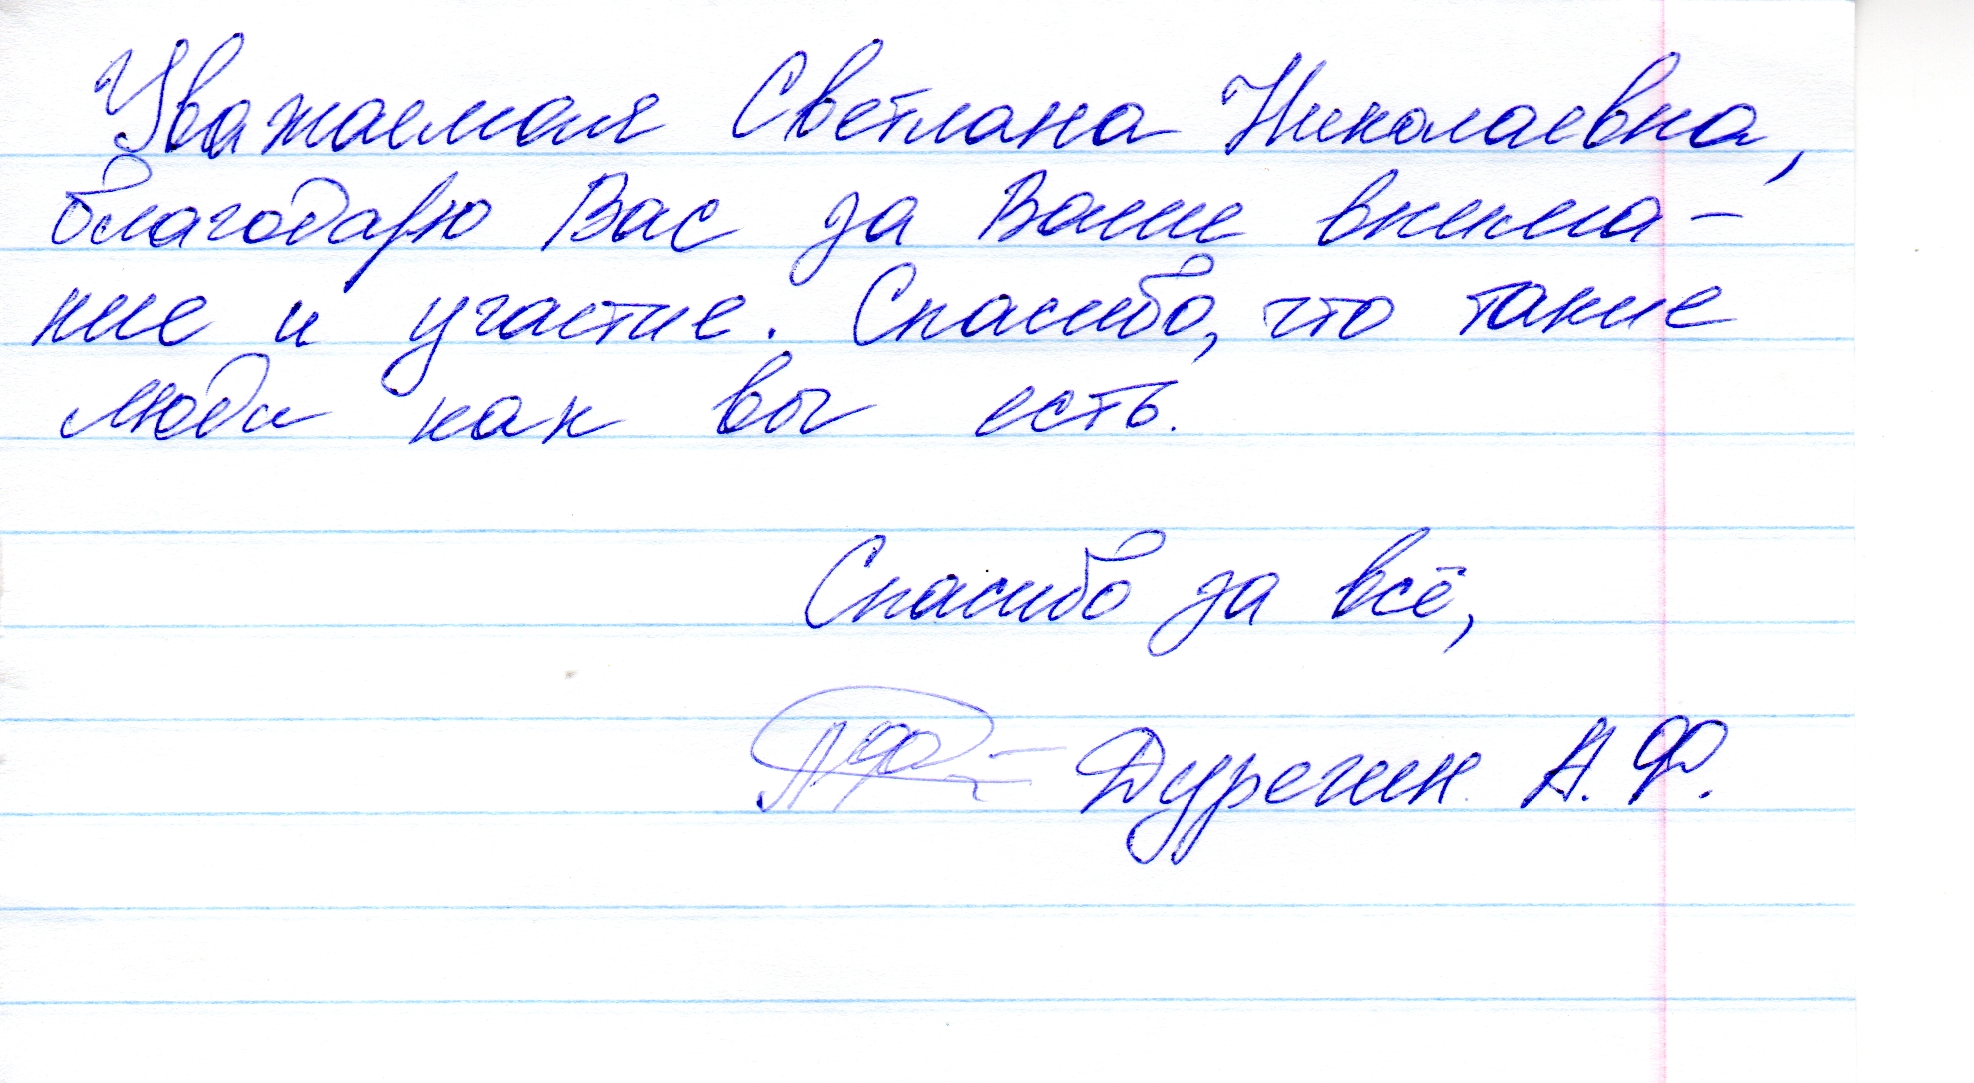 Уважаемая Светлана Николаевна,
благодарю Вас за Ваше внима-
ние и участие. Спасибо, что такие
люди как вы есть.
Спасибо за всё,
Дурегин А.Ф.